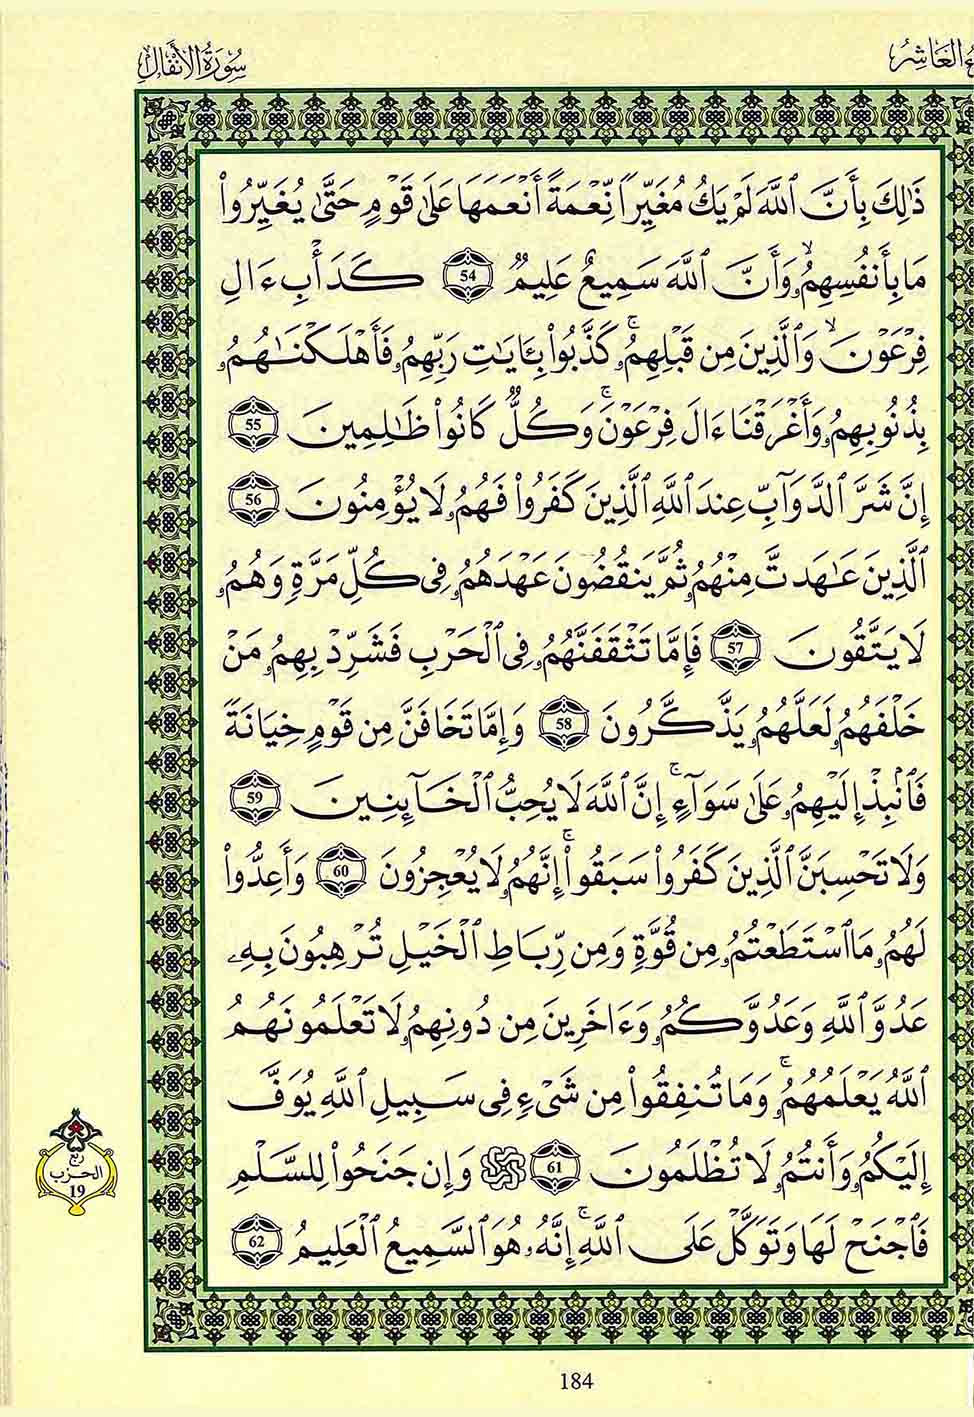 ءُ العَاشِرُ
سُورَةُ الأَنفَالِ
ذَٰلِكَ بِأَنَّ ٱللَّهَ لَمْ يَكُ مُغَيِّراً نِّعْمَةً أَنْعَمَهَا عَلَىٰ قَوْمٍ حَتَّىٰ يُغَيِّرُواْ
مَا بِأَنفُسِهِمُۥ ۙ وَأَنَّ ٱللَّهَ سَمِيعٌ عَلِيمٌ 54 كَدَأْبِ ءَالِ
فِرْعَوْنَ ۙ وَٱلَّذِينَ مِن قَبْلِهِمُۥ ۚ كَذَّبُواْ بِـَٔايَٰتِ رَبِّهِمُۥ فَأَهْلَكْنَٰهُمُۥ
بِذُنُوبِهِمُۥ وَأَغْرَقْنَا ءَالَ فِرْعَوْنَ ۚ وَكُلٌّ كَانُواْ ظَٰلِمِينَ 55
إِنَّ شَرَّ ٱلدَّوَآبِّ عِندَ ٱللَّهِ ٱلَّذِينَ كَفَرُواْ فَهُمُۥ لَا يُؤْمِنُونَ 56
ٱلَّذِينَ عَٰهَدتَّ مِنْهُمُۥ ثُمَّ يَنقُضُونَ عَهْدَهُمُۥ فِى كُلِّ مَرَّةٍ وَهُمُۥ
لَا يَتَّقُونَ 57 فَإِمَّا تَثْقَفَنَّهُمُۥ فِى ٱلْحَرْبِ فَشَرِّدْ بِهِمُۥ مَنْ
خَلْفَهُمُۥ لَعَلَّهُمُۥ يَذَّكَّرُونَ 58 وَإِمَّا تَخَافَنَّ مِن قَوْمٍ خِيَانَةً
فَٱنۢبِذْ إِلَيْهِمُۥ عَلَىٰ سَوَآءٍ ۚ إِنَّ ٱللَّهَ لَا يُحِبُّ ٱلْخَآئِنِينَ 59
وَلَا تَحْسِبَنَّ ٱلَّذِينَ كَفَرُواْ سَبَقُواْ ۚ إِنَّهُمُۥ لَا يُعْجِزُونَ 60 وَأَعِدُّواْ
لَهُمُۥ مَا ٱسْتَطَعْتُمُۥ مِن قُوَّةٍ وَمِن رِّبَاطِ ٱلْخَيْلِ تُرْهِبُونَ بِهِۦ
عَدُوَّ ٱللَّهِ وَعَدُوَّكُمُۥ وَءَاخَرِينَ مِن دُونِهِمُۥ لَا تَعْلَمُونَهُمُ
ٱللَّهُ يَعْلَمُهُمُۥ ۚ وَمَا تُنفِقُواْ مِن شَىْءٍ فِى سَبِيلِ ٱللَّهِ يُوَفَّ
إِلَيْكُمُۥ وَأَنتُمُۥ لَا تُظْلَمُونَ 61 وَإِن جَنَحُواْ لِلسَّلْمِ
فَٱجْنَحْ لَهَا وَتَوَكَّلْ عَلَى ٱللَّهِ ۚ إِنَّهُۥ هُوَ ٱلسَّمِيعُ ٱلْعَلِيمُ 62
ربع
الحزب
19
184